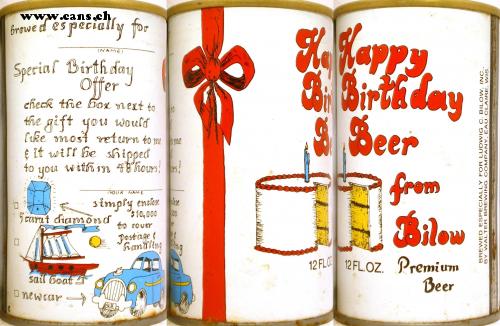 www.cans.ch
Brewed especially for
(NAME)
Special Birthday
Offer
check the box next to
the gift you would
like most return to me
& it will be shipped
to you within 48 hours!
YOUR NAME
simply enclose
$10,000
to cover
postage &
handling
5 carat diamond
sail boat
new car
me
!
Ha
Bir
Be
12 FL.O
Happy
Birthday
Beer
from
Bilow
12 FL.OZ.
Premium
Beer
BREWED ESPECIALLY FOR LUDWIG C. BILOW, INC.
BY WALTER BREWING COMPANY, EAU CLAIRE, WIS.